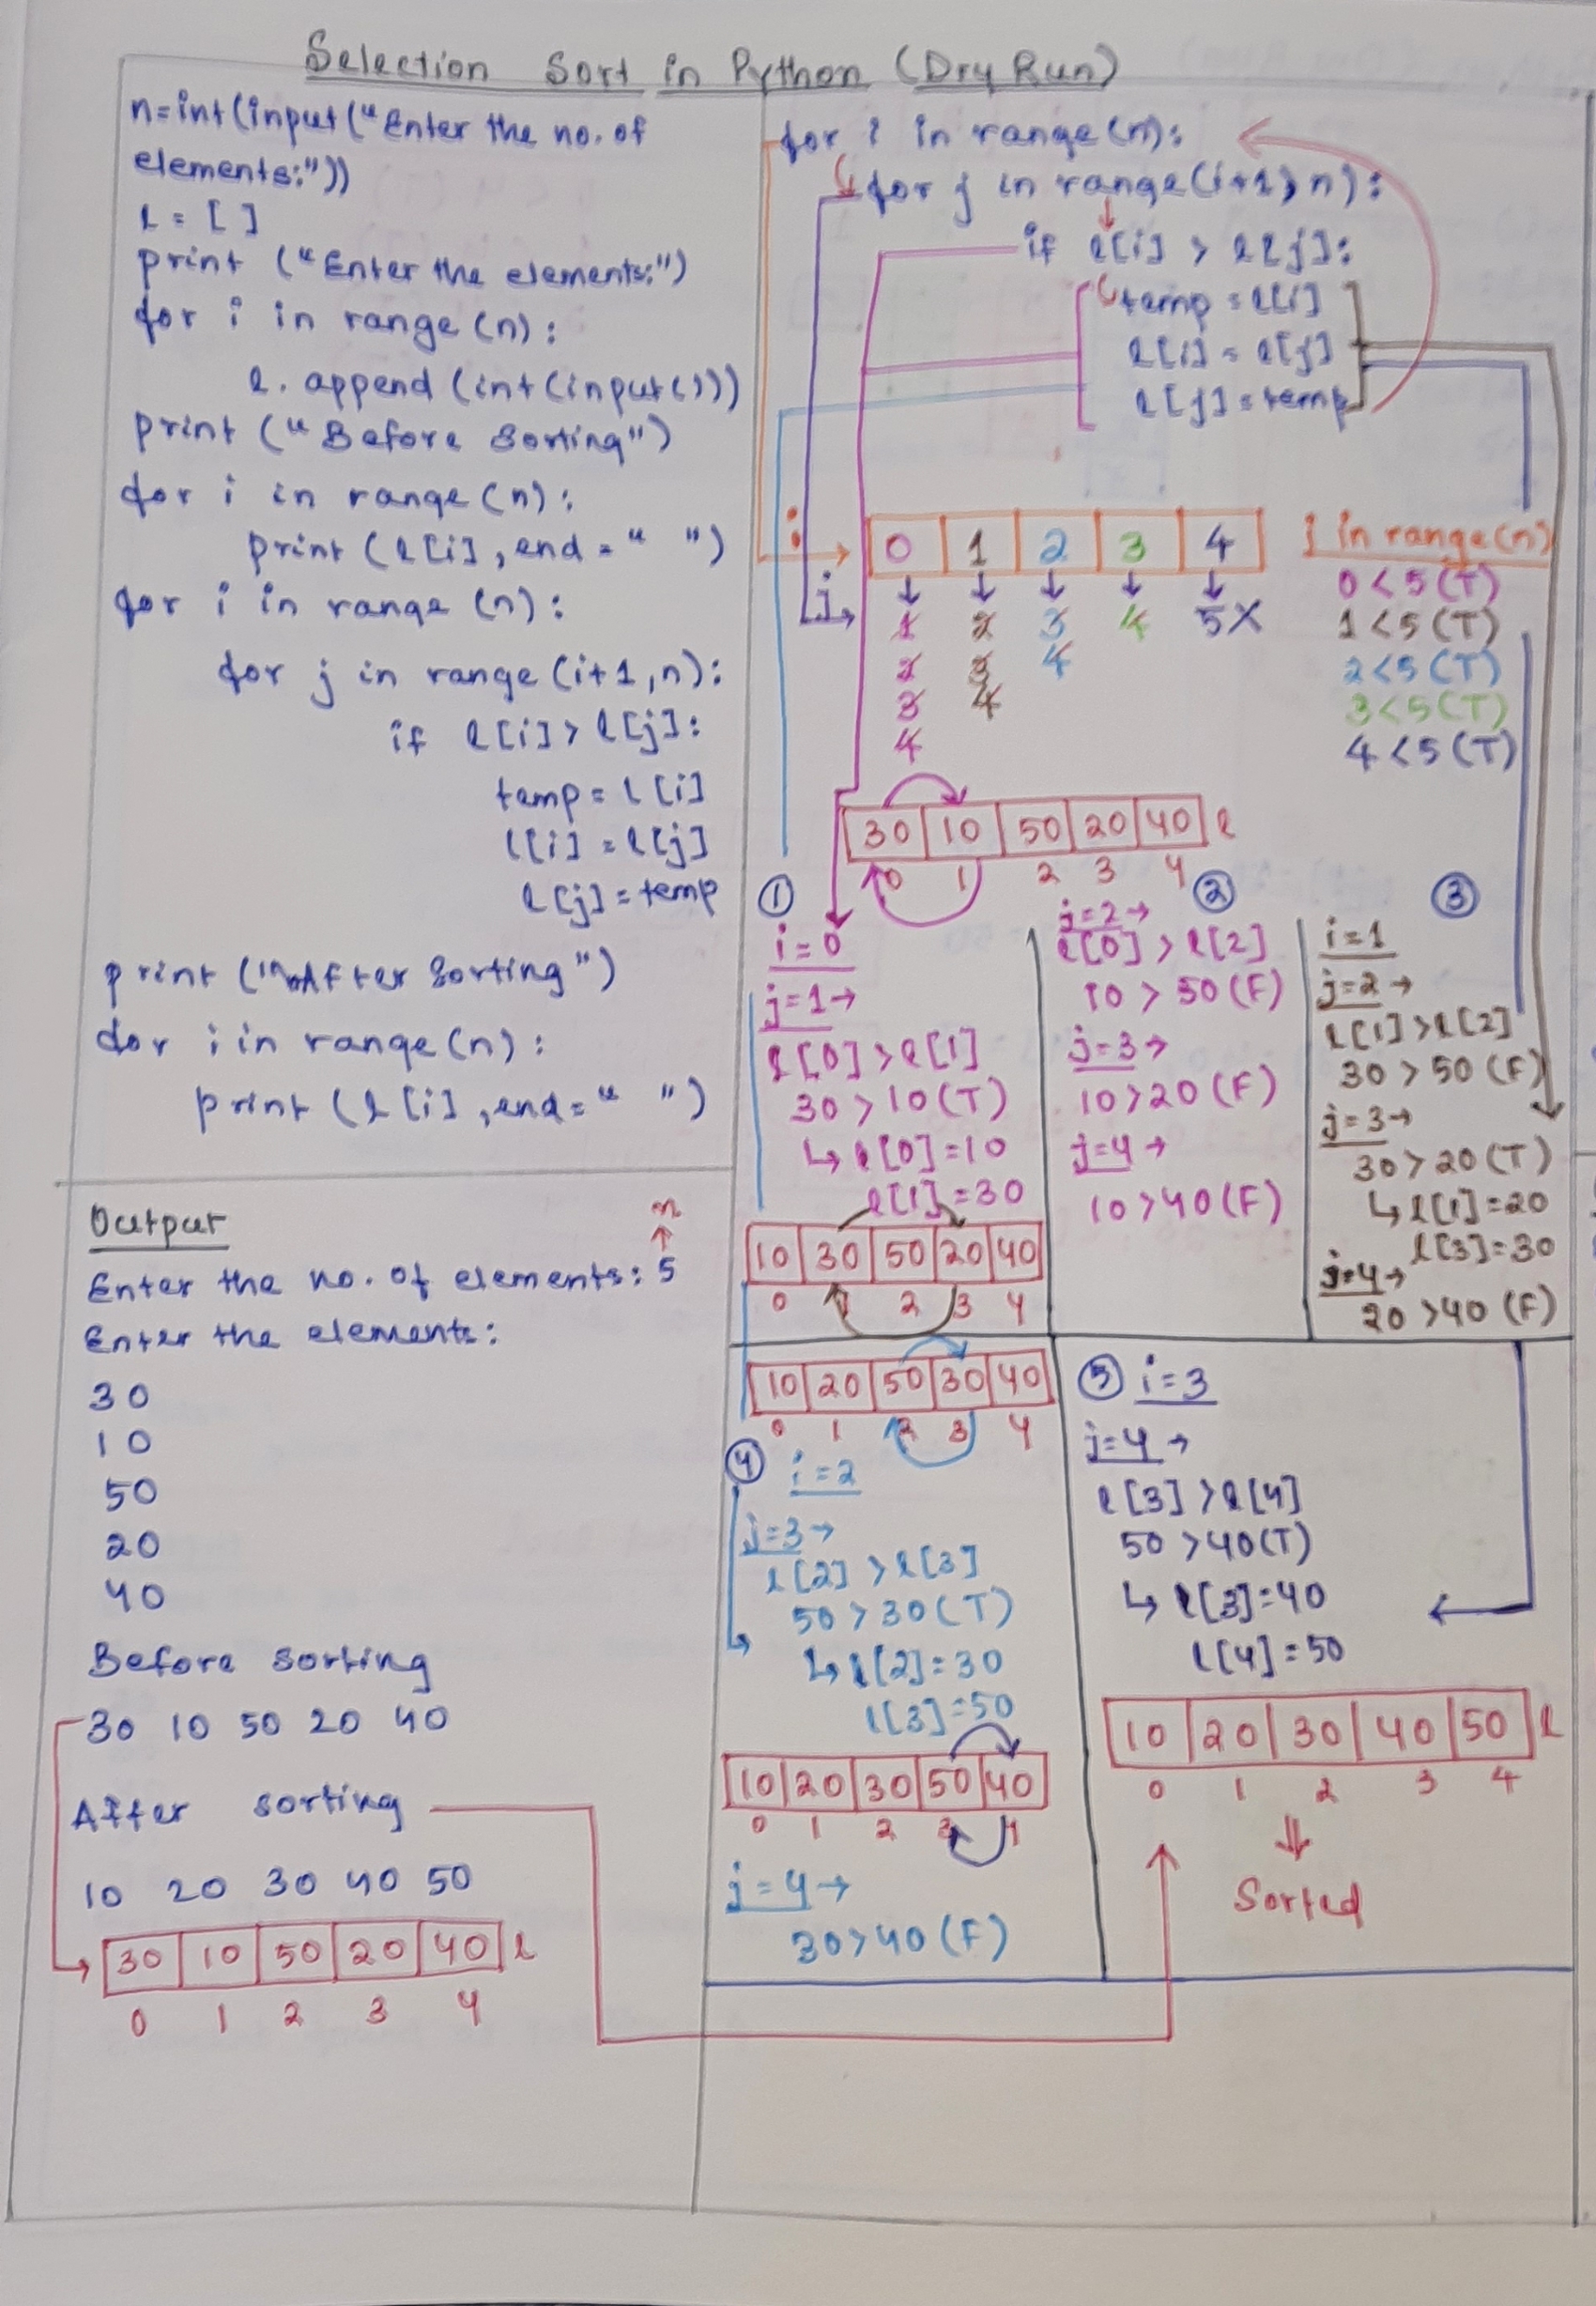 Selection Sort in Python (Dry Run)
n=int(input("Enter the no. of
elements:"))
l = [ ]
print ("Enter the elements:")
for i in range (n):
l. append (int(input()))
print ("Before Sorting")
for i in range (n):
print (l[i], end = " ")
for i in range (n):
for j in range (i+1,n):
if l[i] > l[j]:
temp = l[i]
l[i] = l[j]
l[j] = temp
print ("\nAfter Sorting")
for i in range (n):
print (l[i], end = " ")
Output
n
↑
Enter the no. of elements: 5
Enter the elements:
30
10
50
20
40
Before sorting
30 10 50 20 40
After sorting
10 20 30 40 50
30 10 50 20 40 l
0 1 2 3 4
for i in range (n):
for j in range (i+1, n):
if l[i] > l[j]:
temp = l[i]
l[i] = l[j]
l[j] = temp
i → 0 1 2 3 4
j → 1 2 3 4 5X
2 3 4
3 4
4
i in range(n)
0 < 5 (T)
1 < 5 (T)
2 < 5 (T)
3 < 5 (T)
4 < 5 (T)
30 10 50 20 40 l
0 1 2 3 4
①
i = 0
j = 1 →
l[0] > l[1]
30 > 10 (T)
↳ l[0] = 10
l[1] = 30
10 30 50 20 40
0 1 2 3 4
②
j = 2 →
l[0] > l[2]
10 > 50 (F)
j = 3 →
10 > 20 (F)
j = 4 →
10 > 40 (F)
③
i = 1
j = 2 →
l[1] > l[2]
30 > 50 (F)
j = 3 →
30 > 20 (T)
↳ l[1] = 20
l[3] = 30
j = 4 →
20 > 40 (F)
10 20 50 30 40
0 1 2 3 4
④ i = 2
j = 3 →
l[2] > l[3]
50 > 30 (T)
↳ l[2] = 30
l[3] = 50
10 20 30 50 40
0 1 2 3 4
j = 4 →
30 > 40 (F)
⑤ i = 3
j = 4 →
l[3] > l[4]
50 > 40 (T)
↳ l[3] = 40
l[4] = 50
10 20 30 40 50 l
0 1 2 3 4
⇓
Sorted